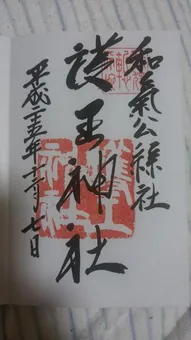 和氣公綜社
護王神社
平成二十五年二月七日